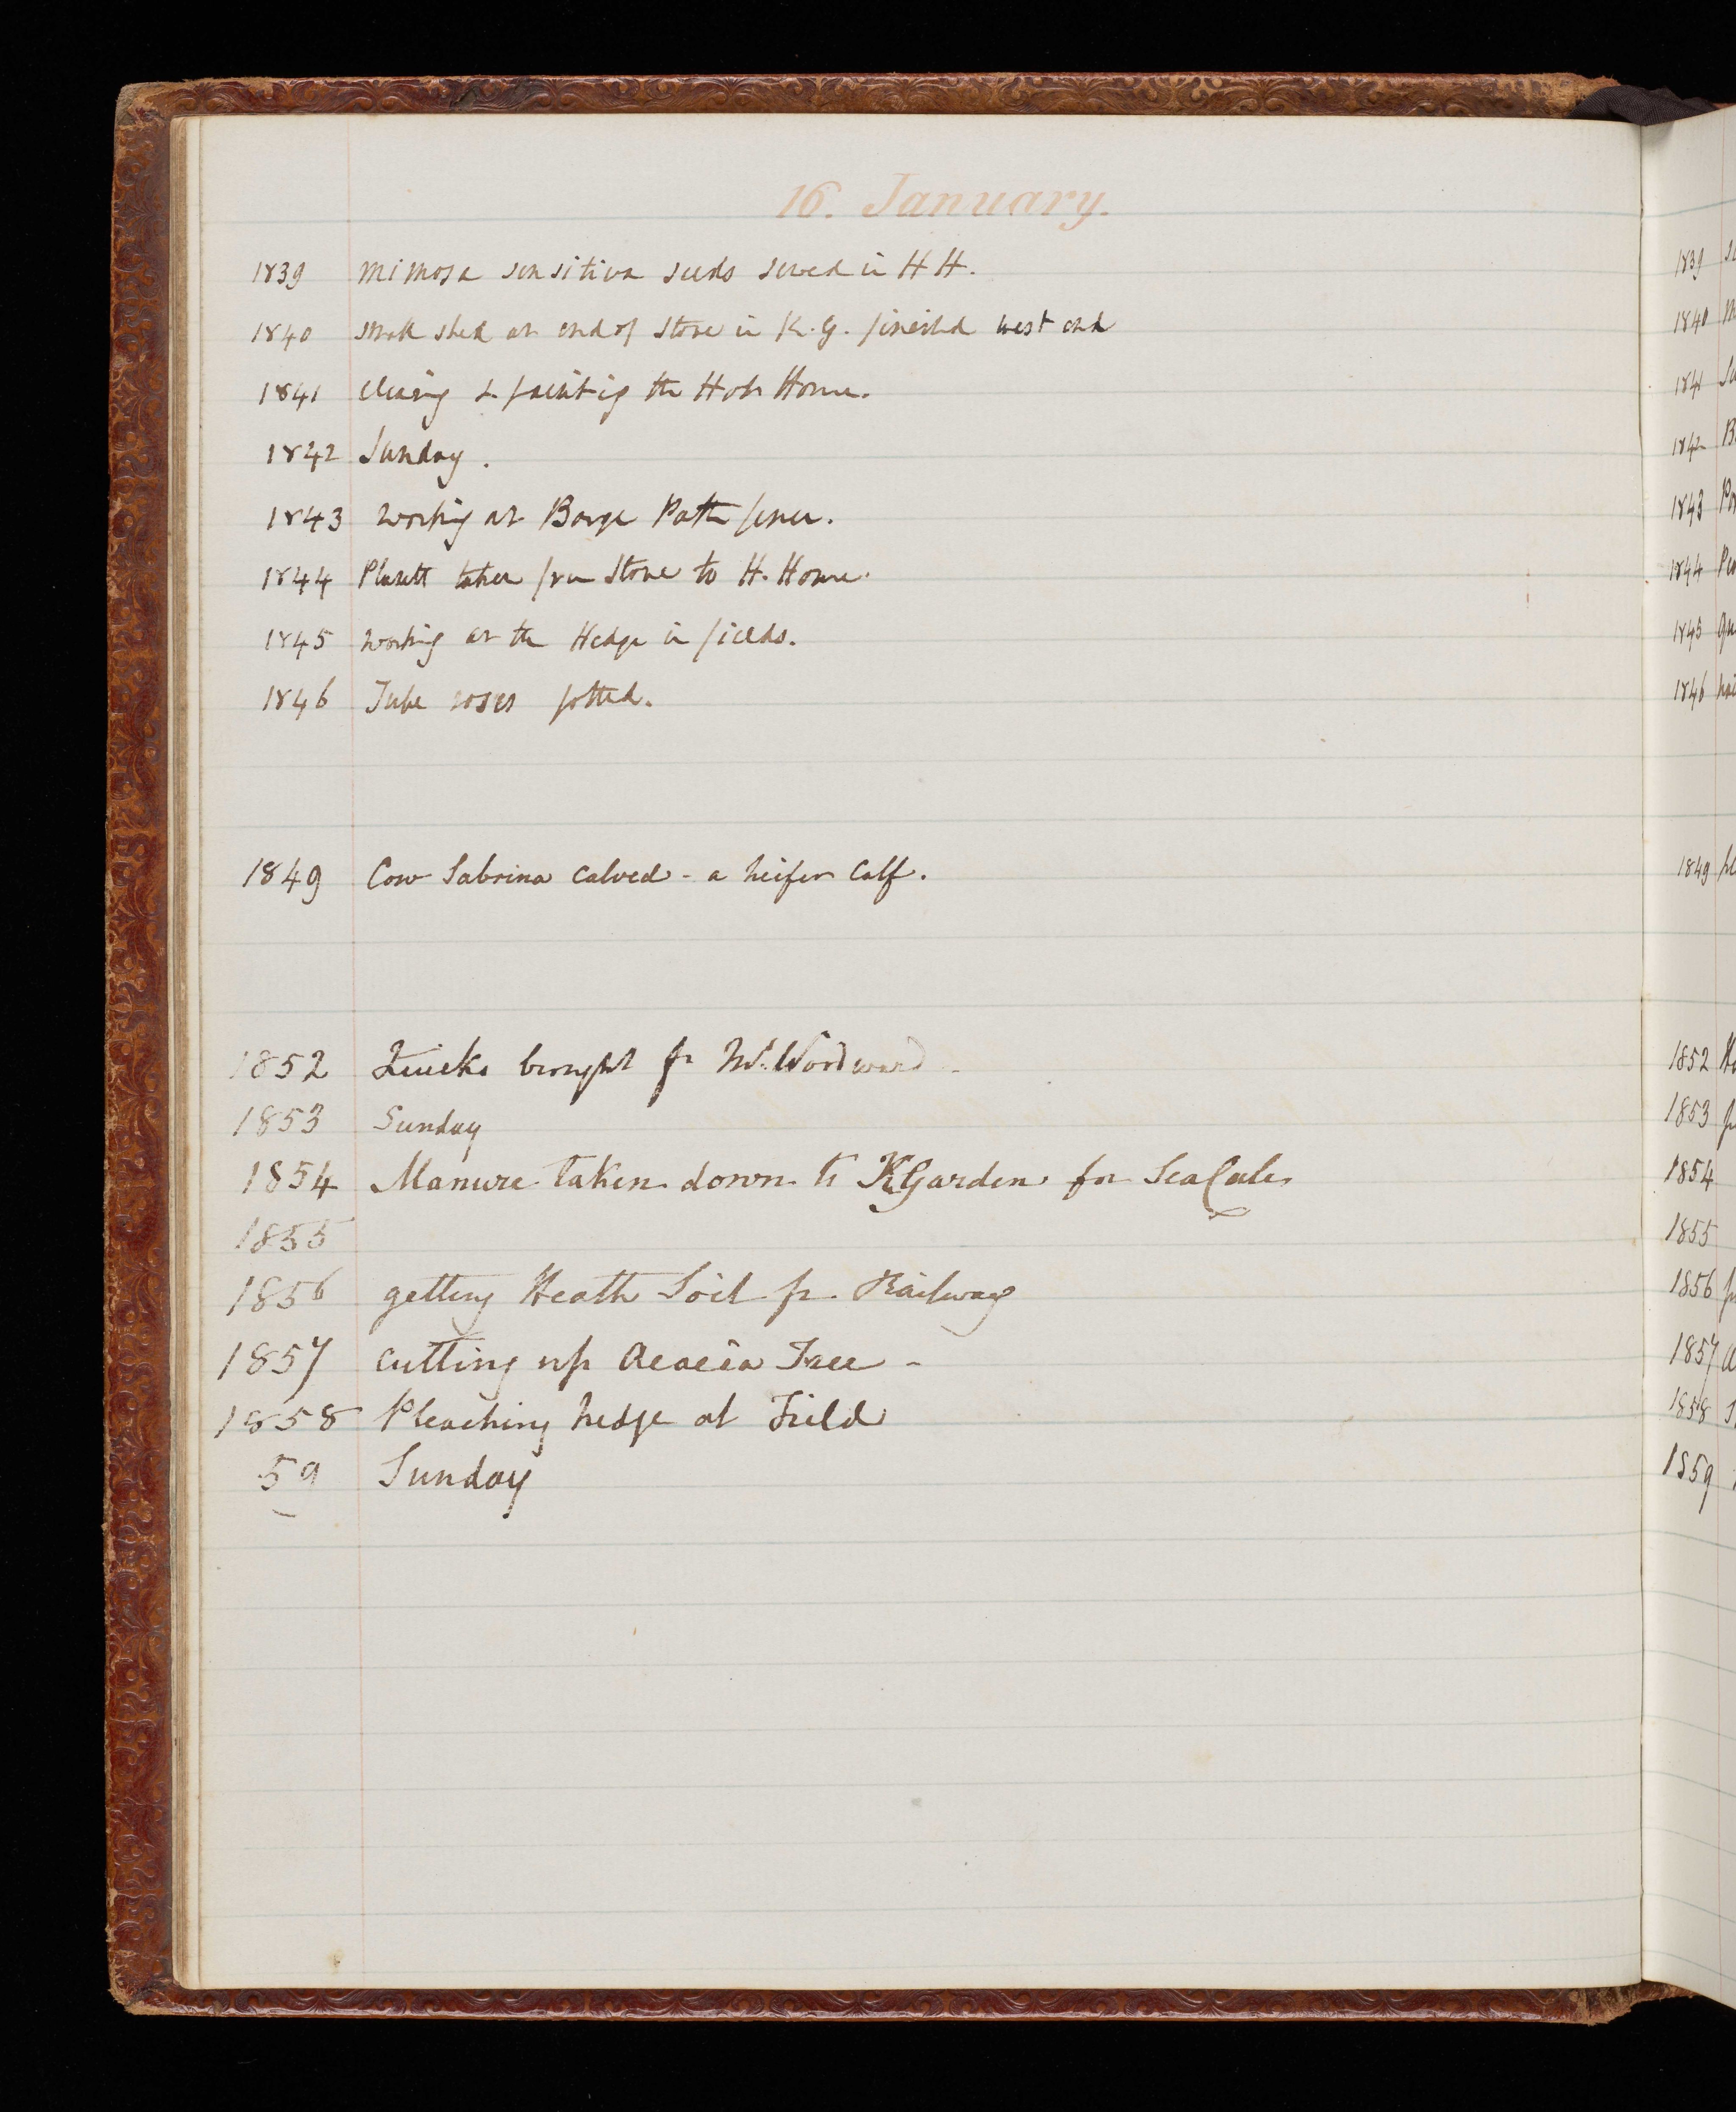 16. January.
1839 Mimosa sensitiva seeds sowed in H H.
1840 small shed at end of Stove in K. G. finished west end
1841 cleaning & painting the Hot House.
1842 Sunday.
1843 working at Barge Path fence.
1844 Plants taken from Stove to H. House.
1845 working at the Hedge in fields.
1846 Tube roses potted.
1849 Cow Sabrina calved - a heifer Calf.
1852 Quicks brought fr Mr. Woodward -
1853 Sunday
1854 Manure taken down to K Garden for Sea Cale
1855
1856 getting Heath Soil fr. Railway
1857 cutting up Acacia Tree -
1858 Pleaching hedge at Field
59 Sunday
1839
1840
1841
1842
1843
1844
1845
1846
1849
1852
1853
1854
1855
1856
1857
1858
1859